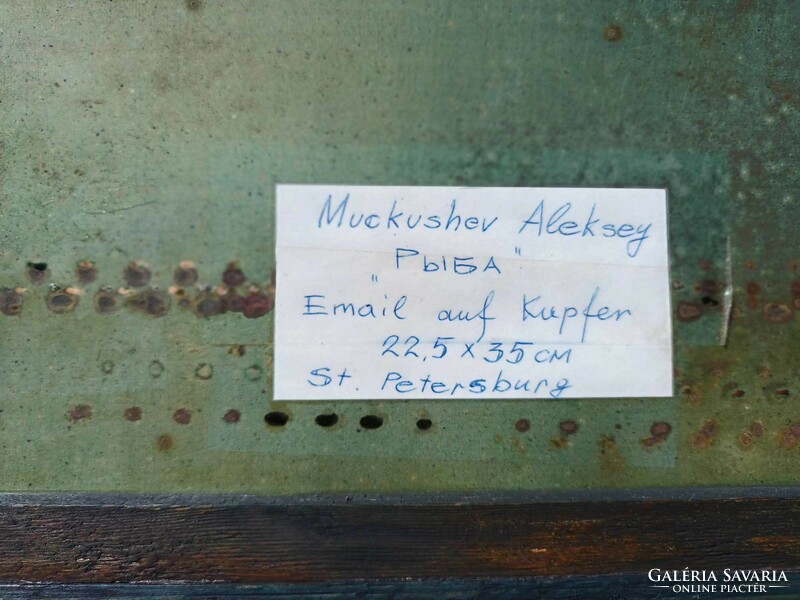 Muckushev Aleksey
"РЫБА"
Email auf Kupfer
22,5 x 35 см
St. Petersburg
GALÉRIA SAVARIA
ONLINE PIACTÉR